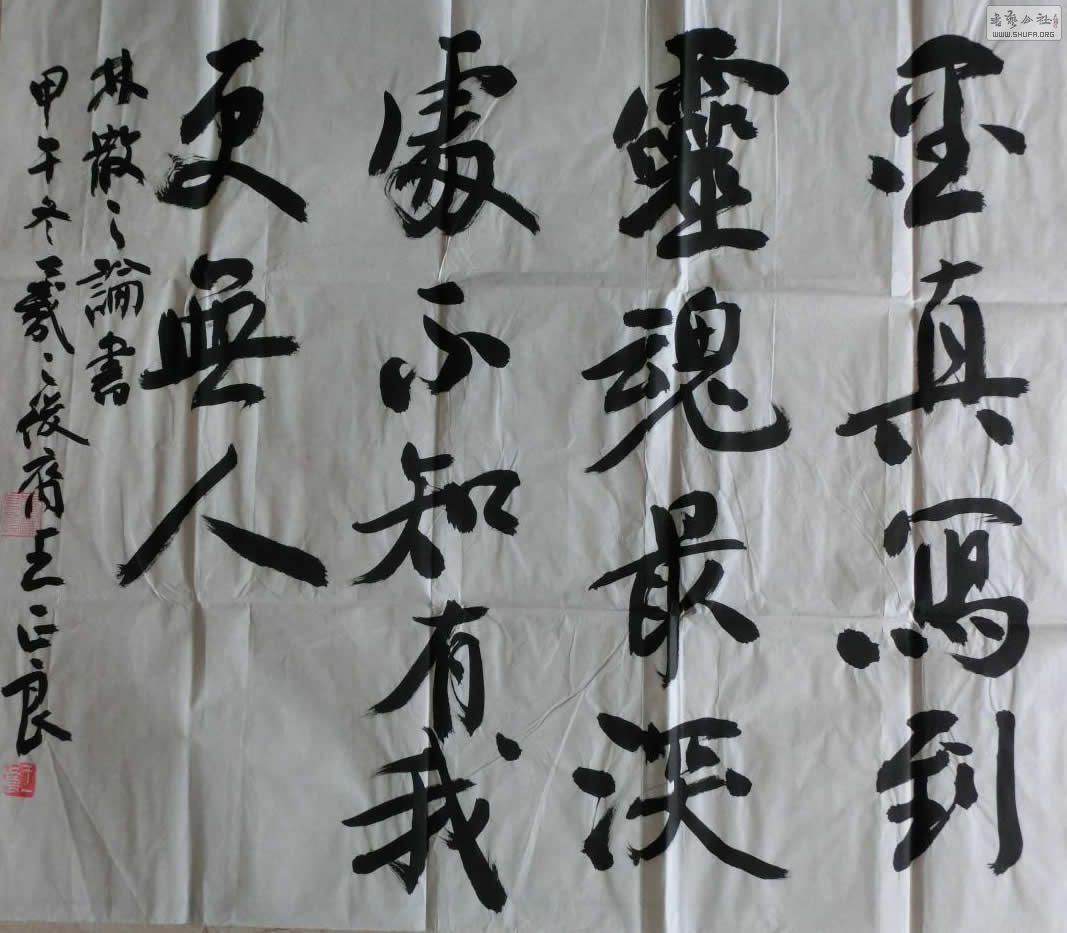 真寫到
靈魂最深
處不知有我
更無人
林散之論書
甲午冬羲之後裔王正良
书艺公社
WWW.SHUFA.ORG